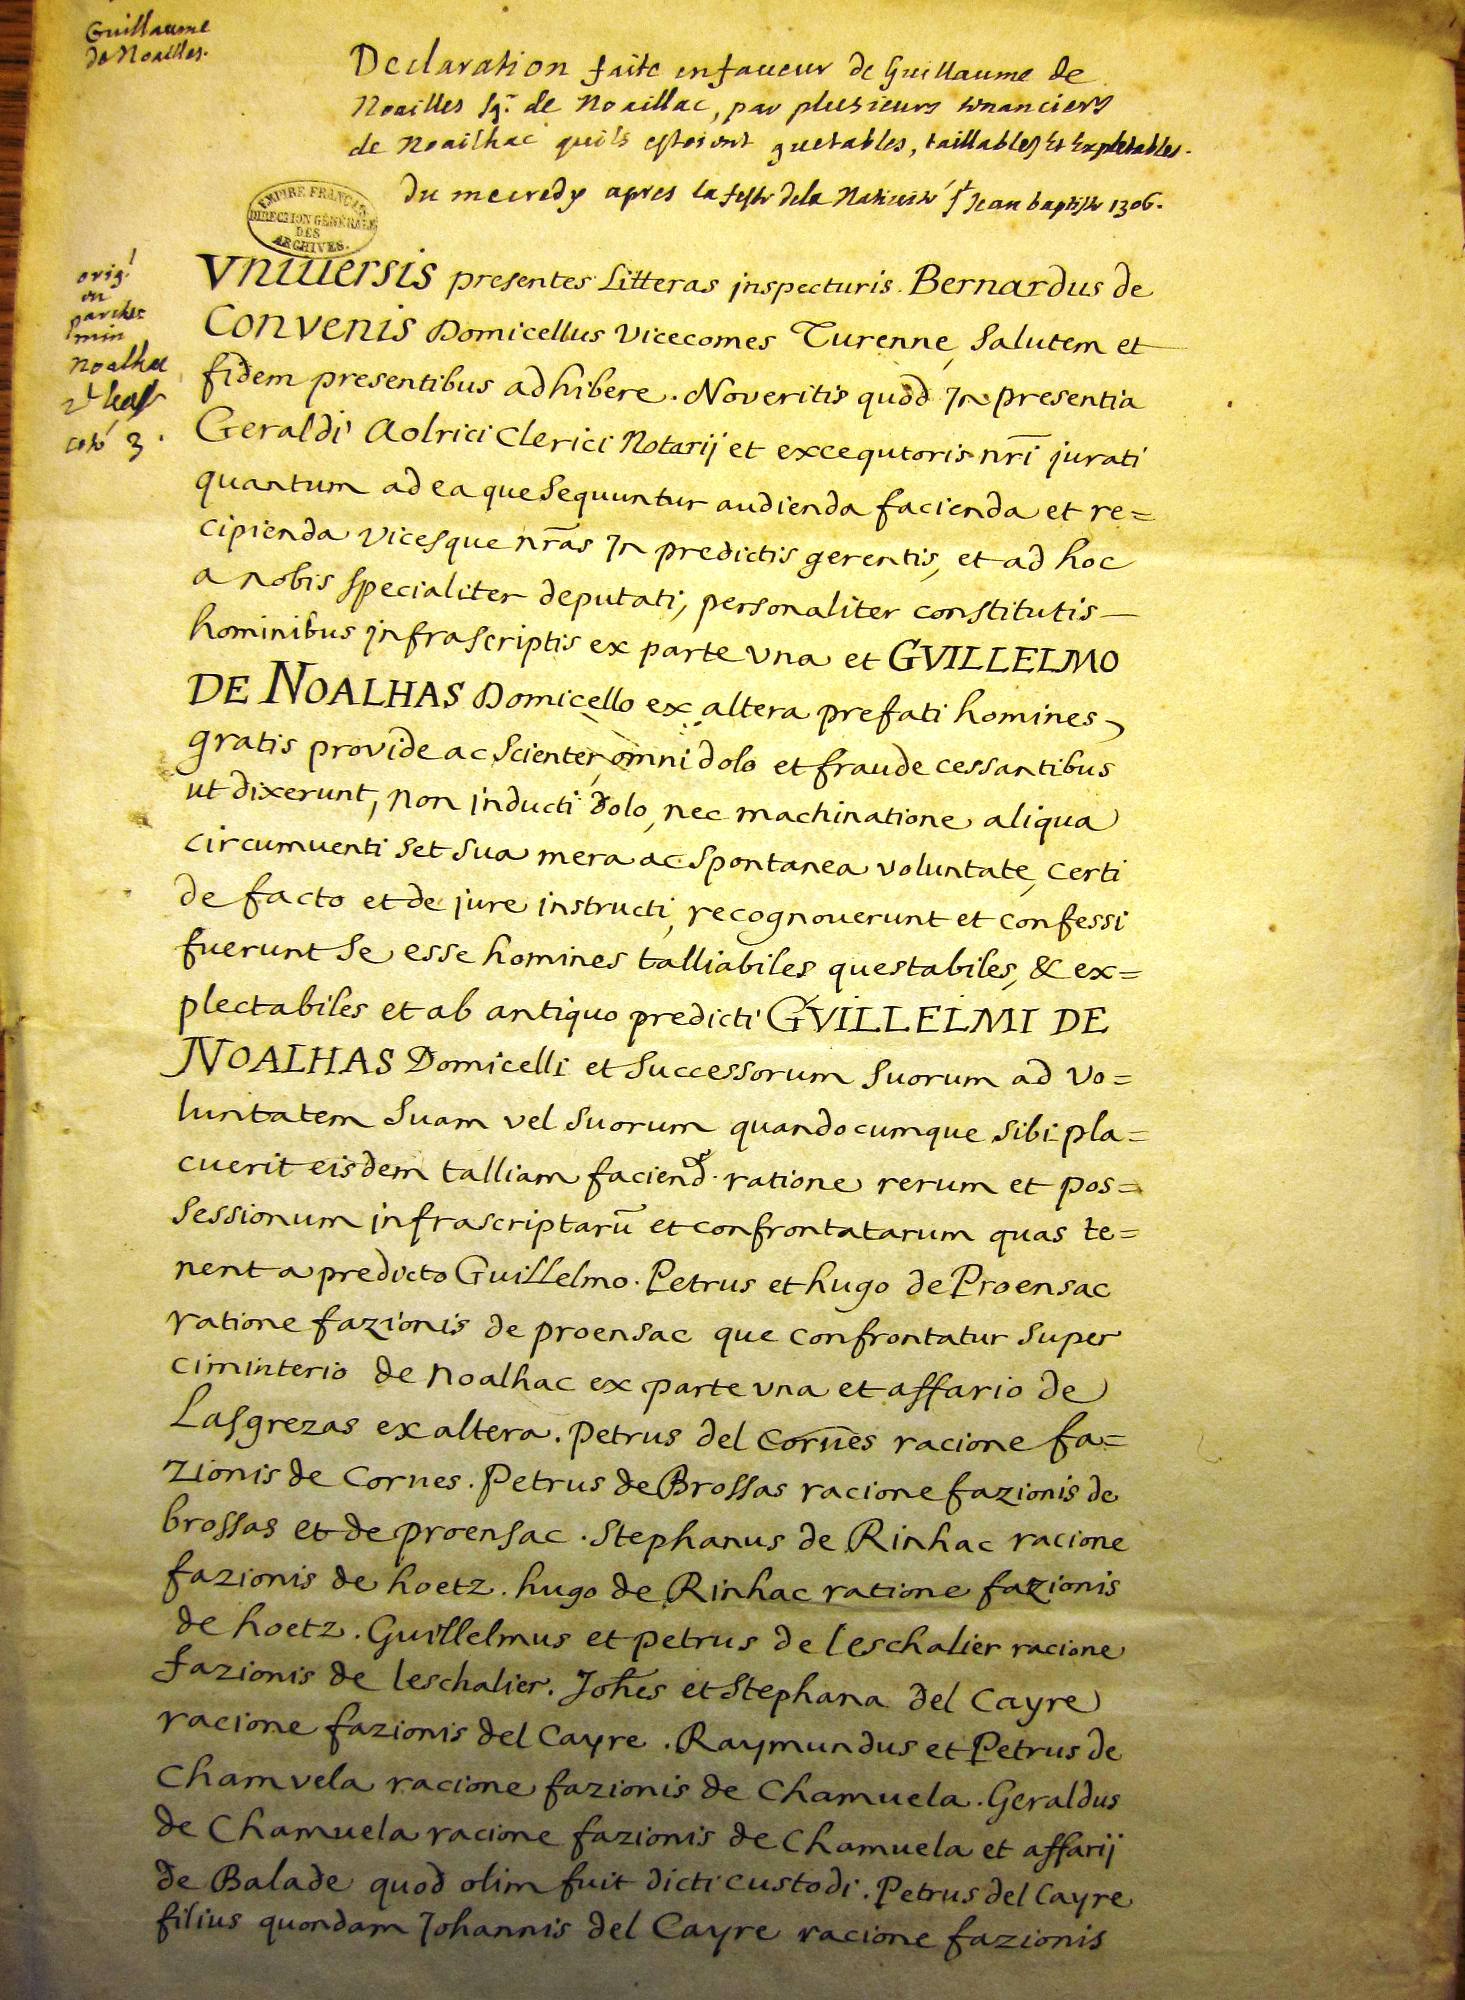 Guillaume
de Noailles.
Declaration faite en faueur de Guillaume de
Noailles Sgr. de Noaillac, par plusieurs tenanciers
de Noailhac quils estoient quetables, taillables Et Expletables.
du mecredy apres la feste dela Natiuité St Jean baptiste 1306.
EMPIRE FRANÇAIS
DIRECTION GÉNÉRALE
DES
ARCHIVES.
orig.l
en
parche
min
Noalhac
cote 3.
Vniuersis presentes Litteras jnspecturis. Bernardus de
Convenis Domicellus Vicecomes Turenne, Salutem et
fidem presentibus adhibere. Noveritis quod Jn presentia
Geraldi Aolrici Clerici Notarij et excequtoris nr̃i jurati
quantum ad ea que Sequuntur audienda facienda et re=
cipienda Vicesque nr̃as Jn predictis gerentis, et ad hoc
a nobis Specialiter deputati, personaliter constitutis—
hominibus jnfrascriptis ex parte vna et GVILLELMO
DE NOALHAS Domicello ex altera prefati homines,
gratis provide ac Scienter, omni dolo et fraude cessantibus
ut dixerunt, non jnducti dolo, nec machinatione aliqua
circumuenti Set Sua mera ac Spontanea voluntate, Certi
de facto et de jure instructi, recognouerunt et confessi
fuerunt Se esse homines talliabiles questabiles, & ex=
plectabiles et ab antiquo predicti GVILLELMI DE
NOALHAS Domicelli et Successorum Suorum ad vo=
luntatem Suam vel Suorum quandocumque Sibi pla=
cuerit eisdem talliam faciend. ratione rerum et pos=
Sessionum jnfrascriptarũ et confrontatarum quas te=
nent a predicto Guillelmo. Petrus et hugo de Proensac
ratione fazionis de proensac que confrontatur Super
ciminterio de Noalhac ex parte vna et affario de
Lasgrezas ex altera. Petrus del Corñes racione fa=
zionis de Cornes. Petrus de Brossas racione fazionis de
brossas et de proensac. Stephanus de Rinhac racione
fazionis de hoetz. hugo de Rinhac ratione fazionis
de hoetz. Guillelmus et petrus de leschalier racione
fazionis de leschalier. Joh̃es et Stephana del Cayre
racione fazionis del Cayre. Raymundus et Petrus de
Chamvela racione fazionis de Chamuela. Geraldus
de Chamuela racione fazionis de Chamuela et affarij
de Balade quod olim fuit dicti custodi. Petrus del Cayre
filius quondam Johannis del Cayre racione fazionis